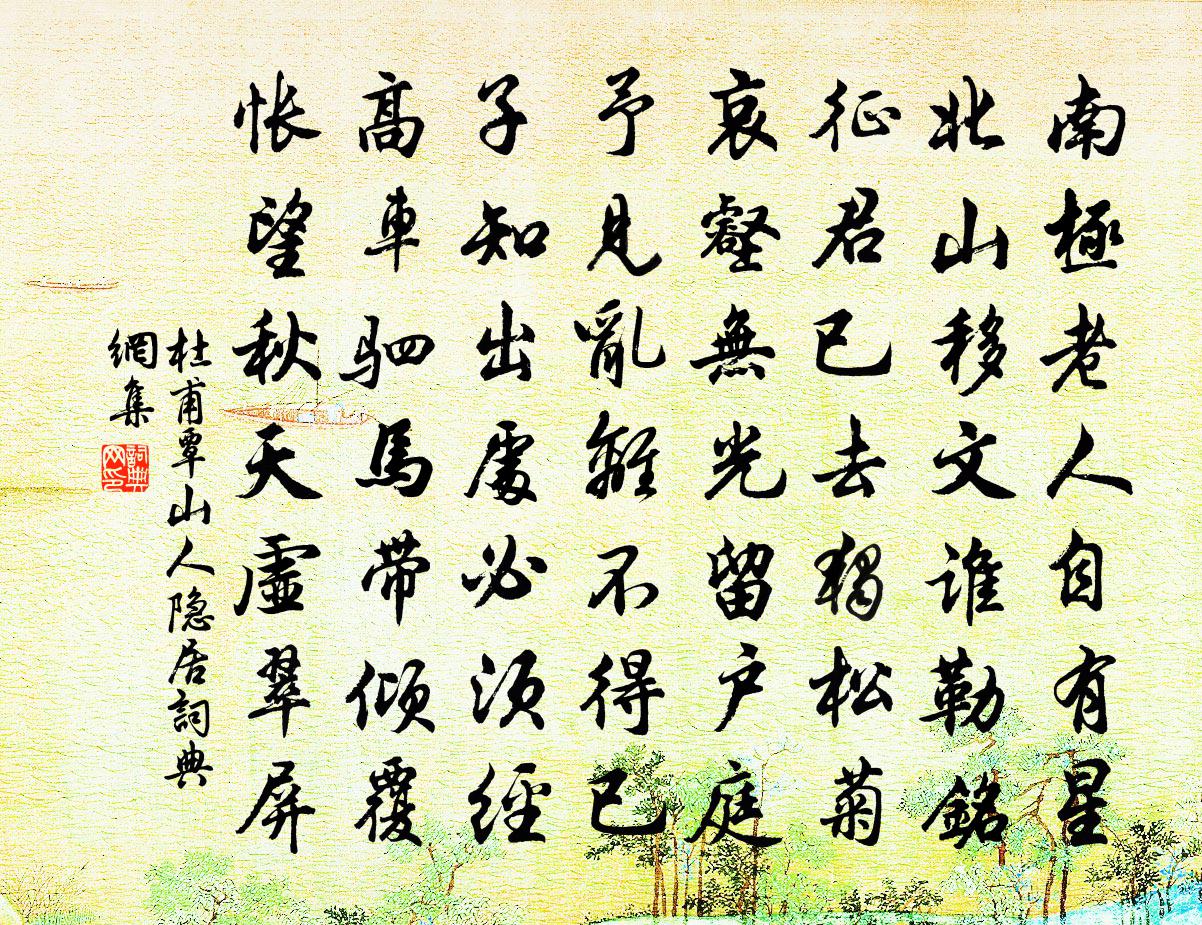 南極老人自有星
北山移文誰勒銘
征君已去獨松菊
哀壑無光留戶庭
予見亂離不得已
子知出處必須經
髙車駟馬帶傾覆
悵望秋天虛翠屏
杜甫覃山人隐居詞典
網集
詞典
网印